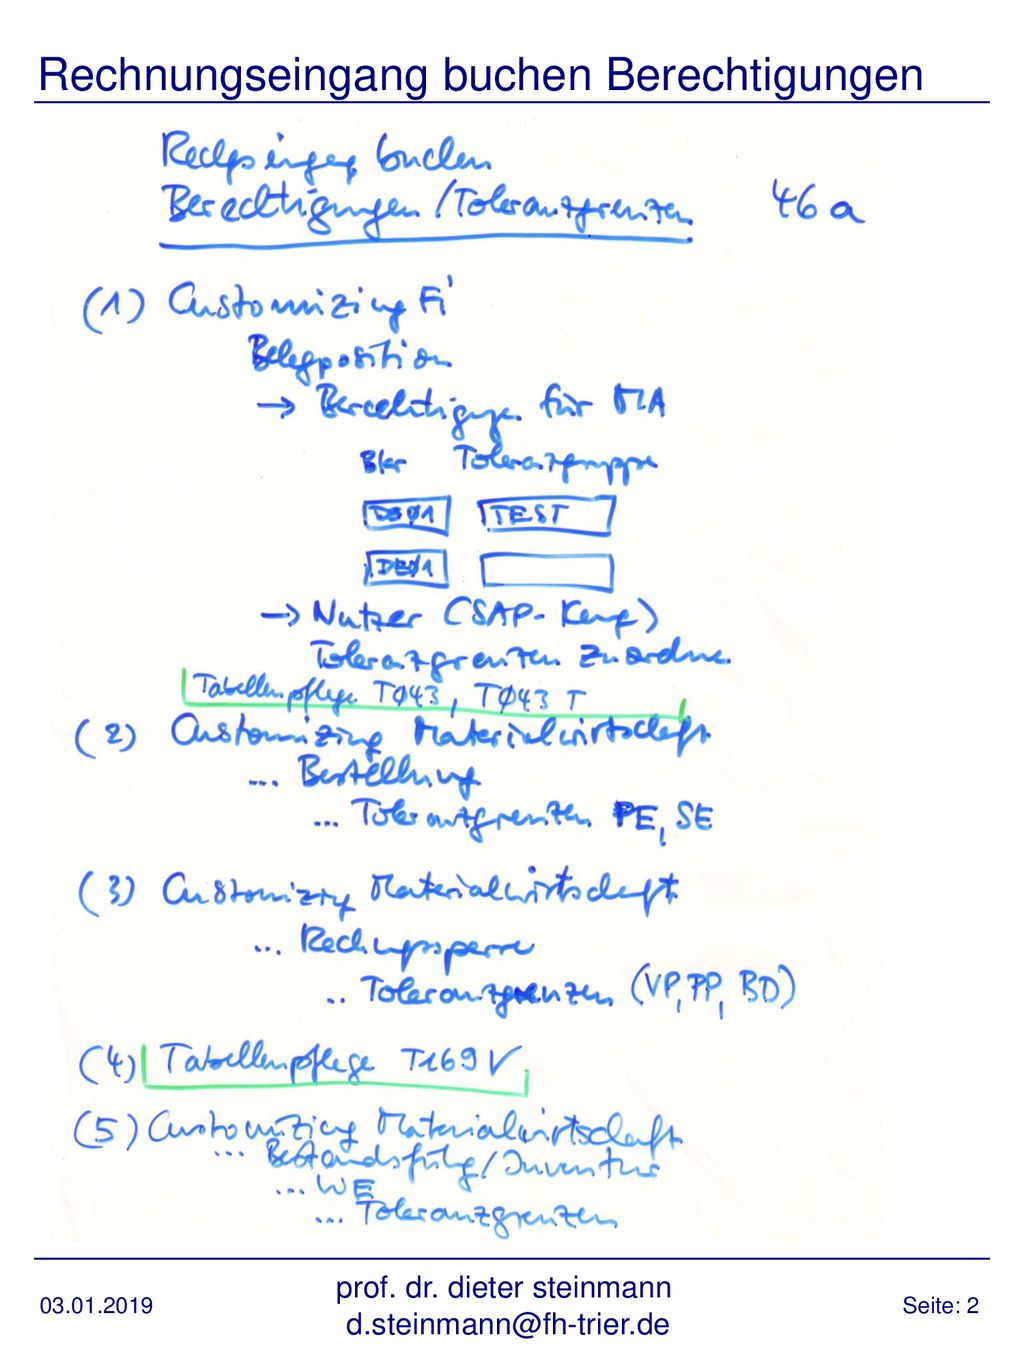 Rechnungseingang buchen Berechtigungen
Rechgseingang buchen
Berechtigungen/Toleranzgrenzen 46a
(1) Customizing Fi
Belegposition
→ Berechtigungen für MA
Bkr Toleranzgruppe
DE01 TEST
DE01
→ Nutzer (SAP-Keng)
Toleranzgrenzen zuordnen
Tabellenpflege TØ43, TØ43T
(2) Customizing Materialwirtschaft
... Bestellung
... Toleranzgrenzen PE, SE
(3) Customizing Materialwirtschaft
... Rechungssperre
.. Toleranzgrenzen (VP, PP, BD)
(4) Tabellenpflege T169V
(5) Customizing Materialwirtschaft
... Bestandsführg/Inventur
... WE
... Toleranzgrenzen
03.01.2019
prof. dr. dieter steinmann
d.steinmann@fh-trier.de
Seite: 2